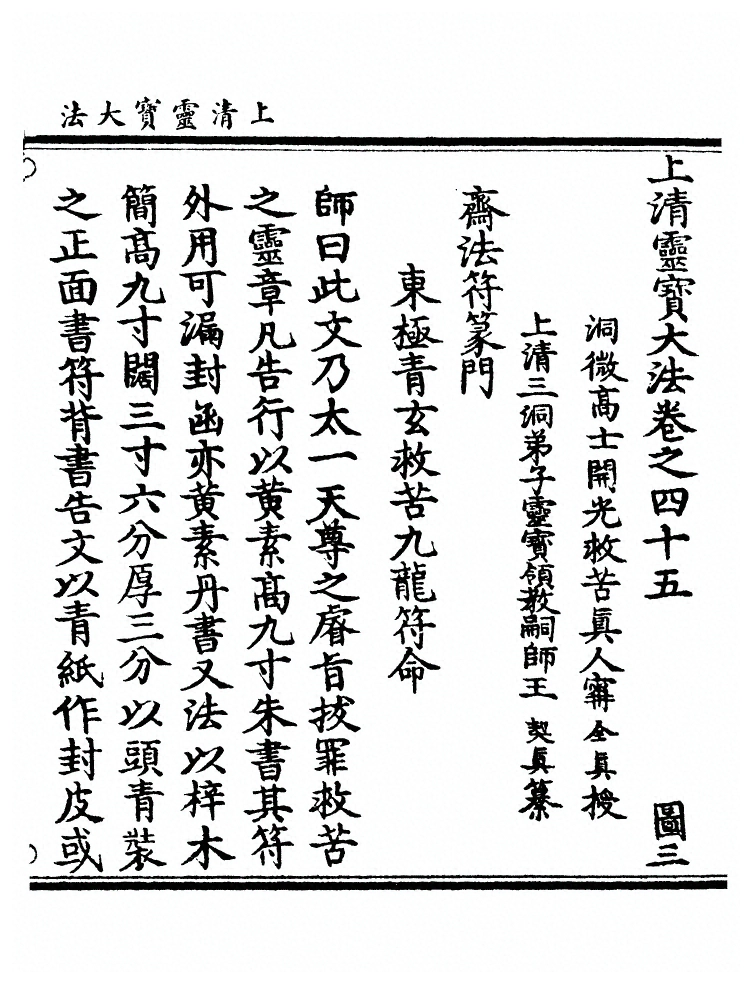 上清靈寶大法
上清靈寶大法卷之四十五 圖三
洞微高士開光救苦眞人寗全眞授
上清三洞弟子靈寶領教嗣師王契眞纂
齋法符篆門
東極青玄救苦九龍符命
師曰此文乃太一天尊之睿旨拔罪救苦
之靈章凡告行以黄素高九寸朱書其符
外用可漏封函亦黄素丹書又法以梓木
簡高九寸闊三寸六分厚三分以頭青裝
之正面書符背書告文以青紙作封皮或